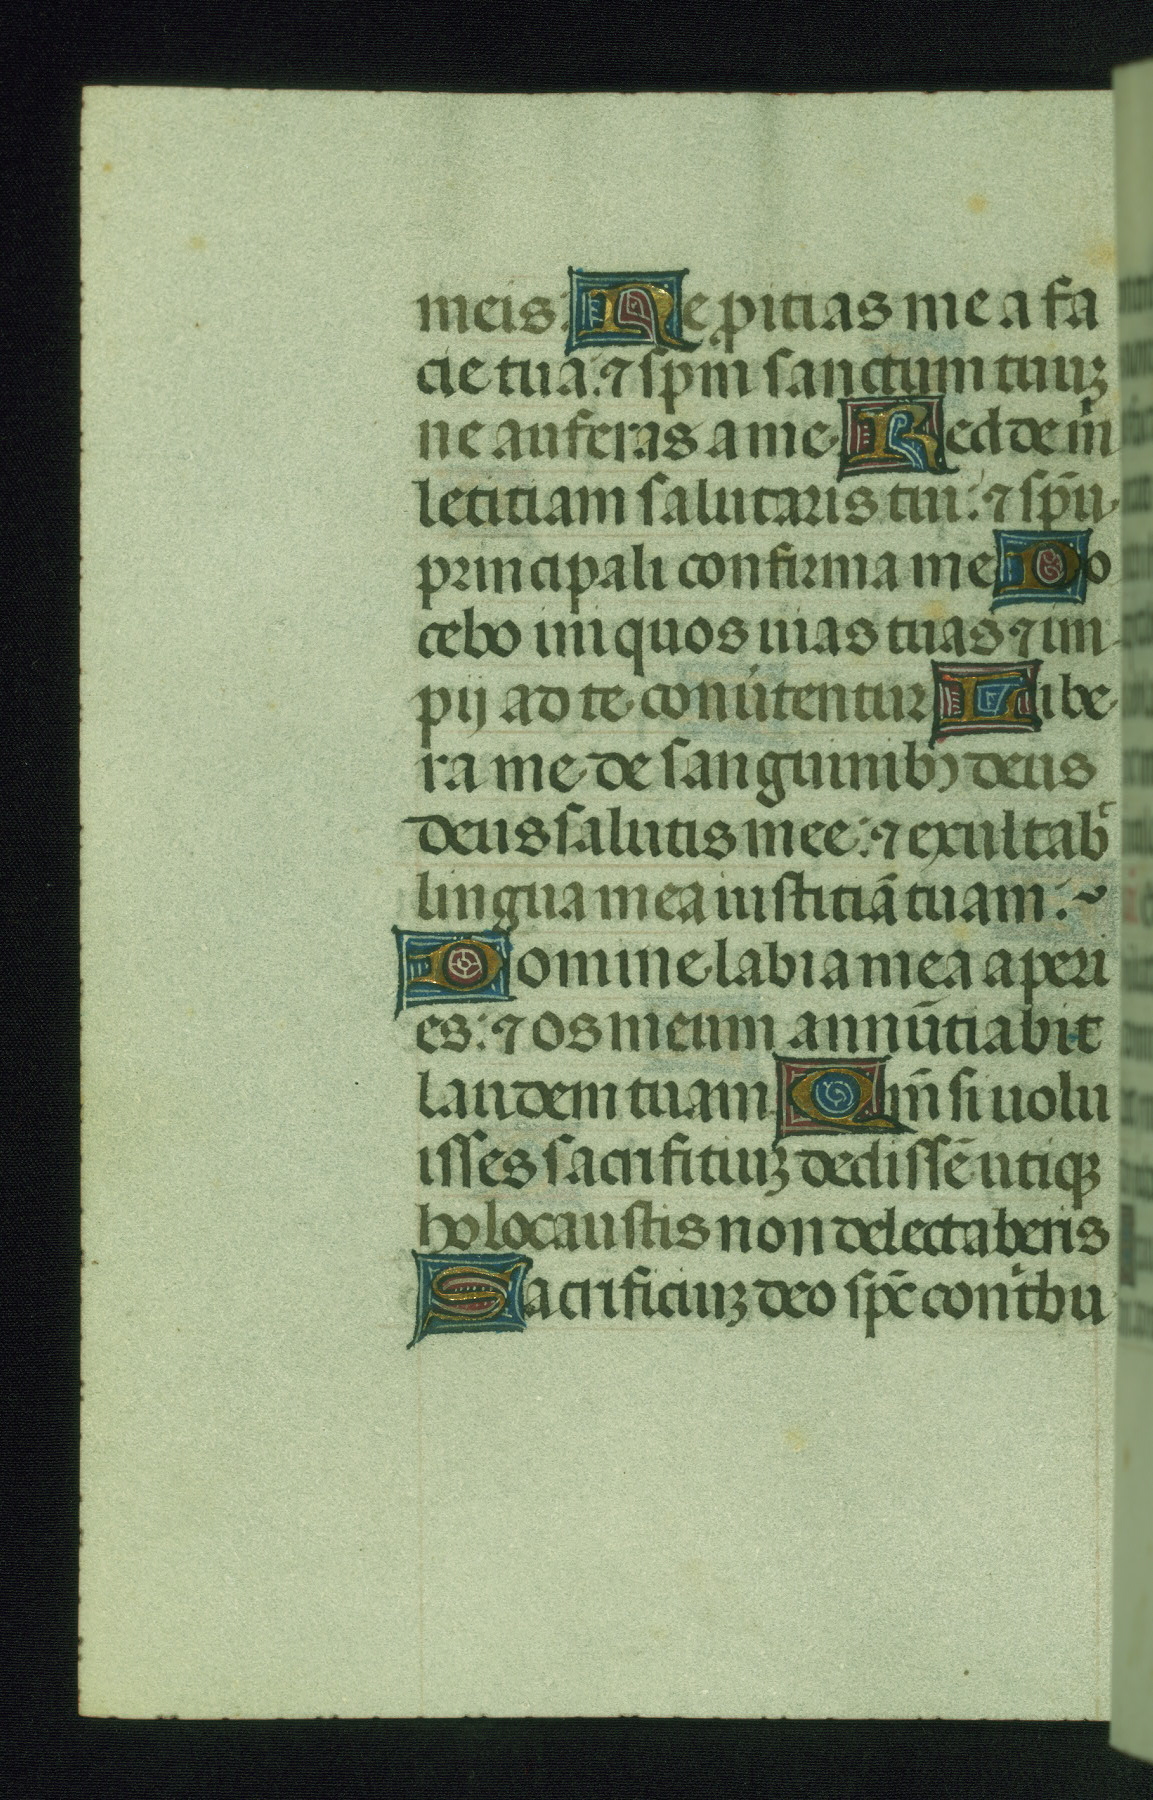 meis: Ne ꝓitias me a fa
cie tua: ⁊ sp̄m sanctum tuuꝫ
ne auferas a me Redde m̄
letitiam salutaris tui: ⁊ sp̄u
principali confirma me Do
cebo iniquos uias tuas ⁊ im
pij ad te conu̇tentur Libe
ra me de sanguinibꝫ deus
deus salutis mee: ⁊ exultab᷑
lingua mea iustitiā tuam :~
Domine labia mea aperi
es: ⁊ os meum annūtiabit
laudem tuam Qm̄ si uolu
isses sacrifitiuꝫ dedissē utiqꝫ
holocaustis non delectaberis
Sacrificiuꝫ deo sp̄c cont̾bu